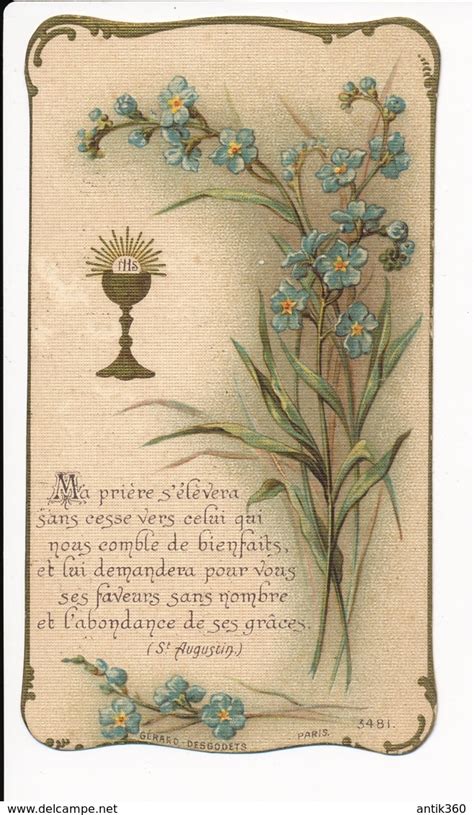 IHS
Ma prière s'élèvera
sans cesse vers celui qui
nous comble de bienfaits,
et lui demandera pour vous
ses faveurs sans nombre
et l'abondance de ses grâces.
(St Augustin.)
GÉRARD-DESGODETS PARIS. 3481.
www.delcampe.net antik360